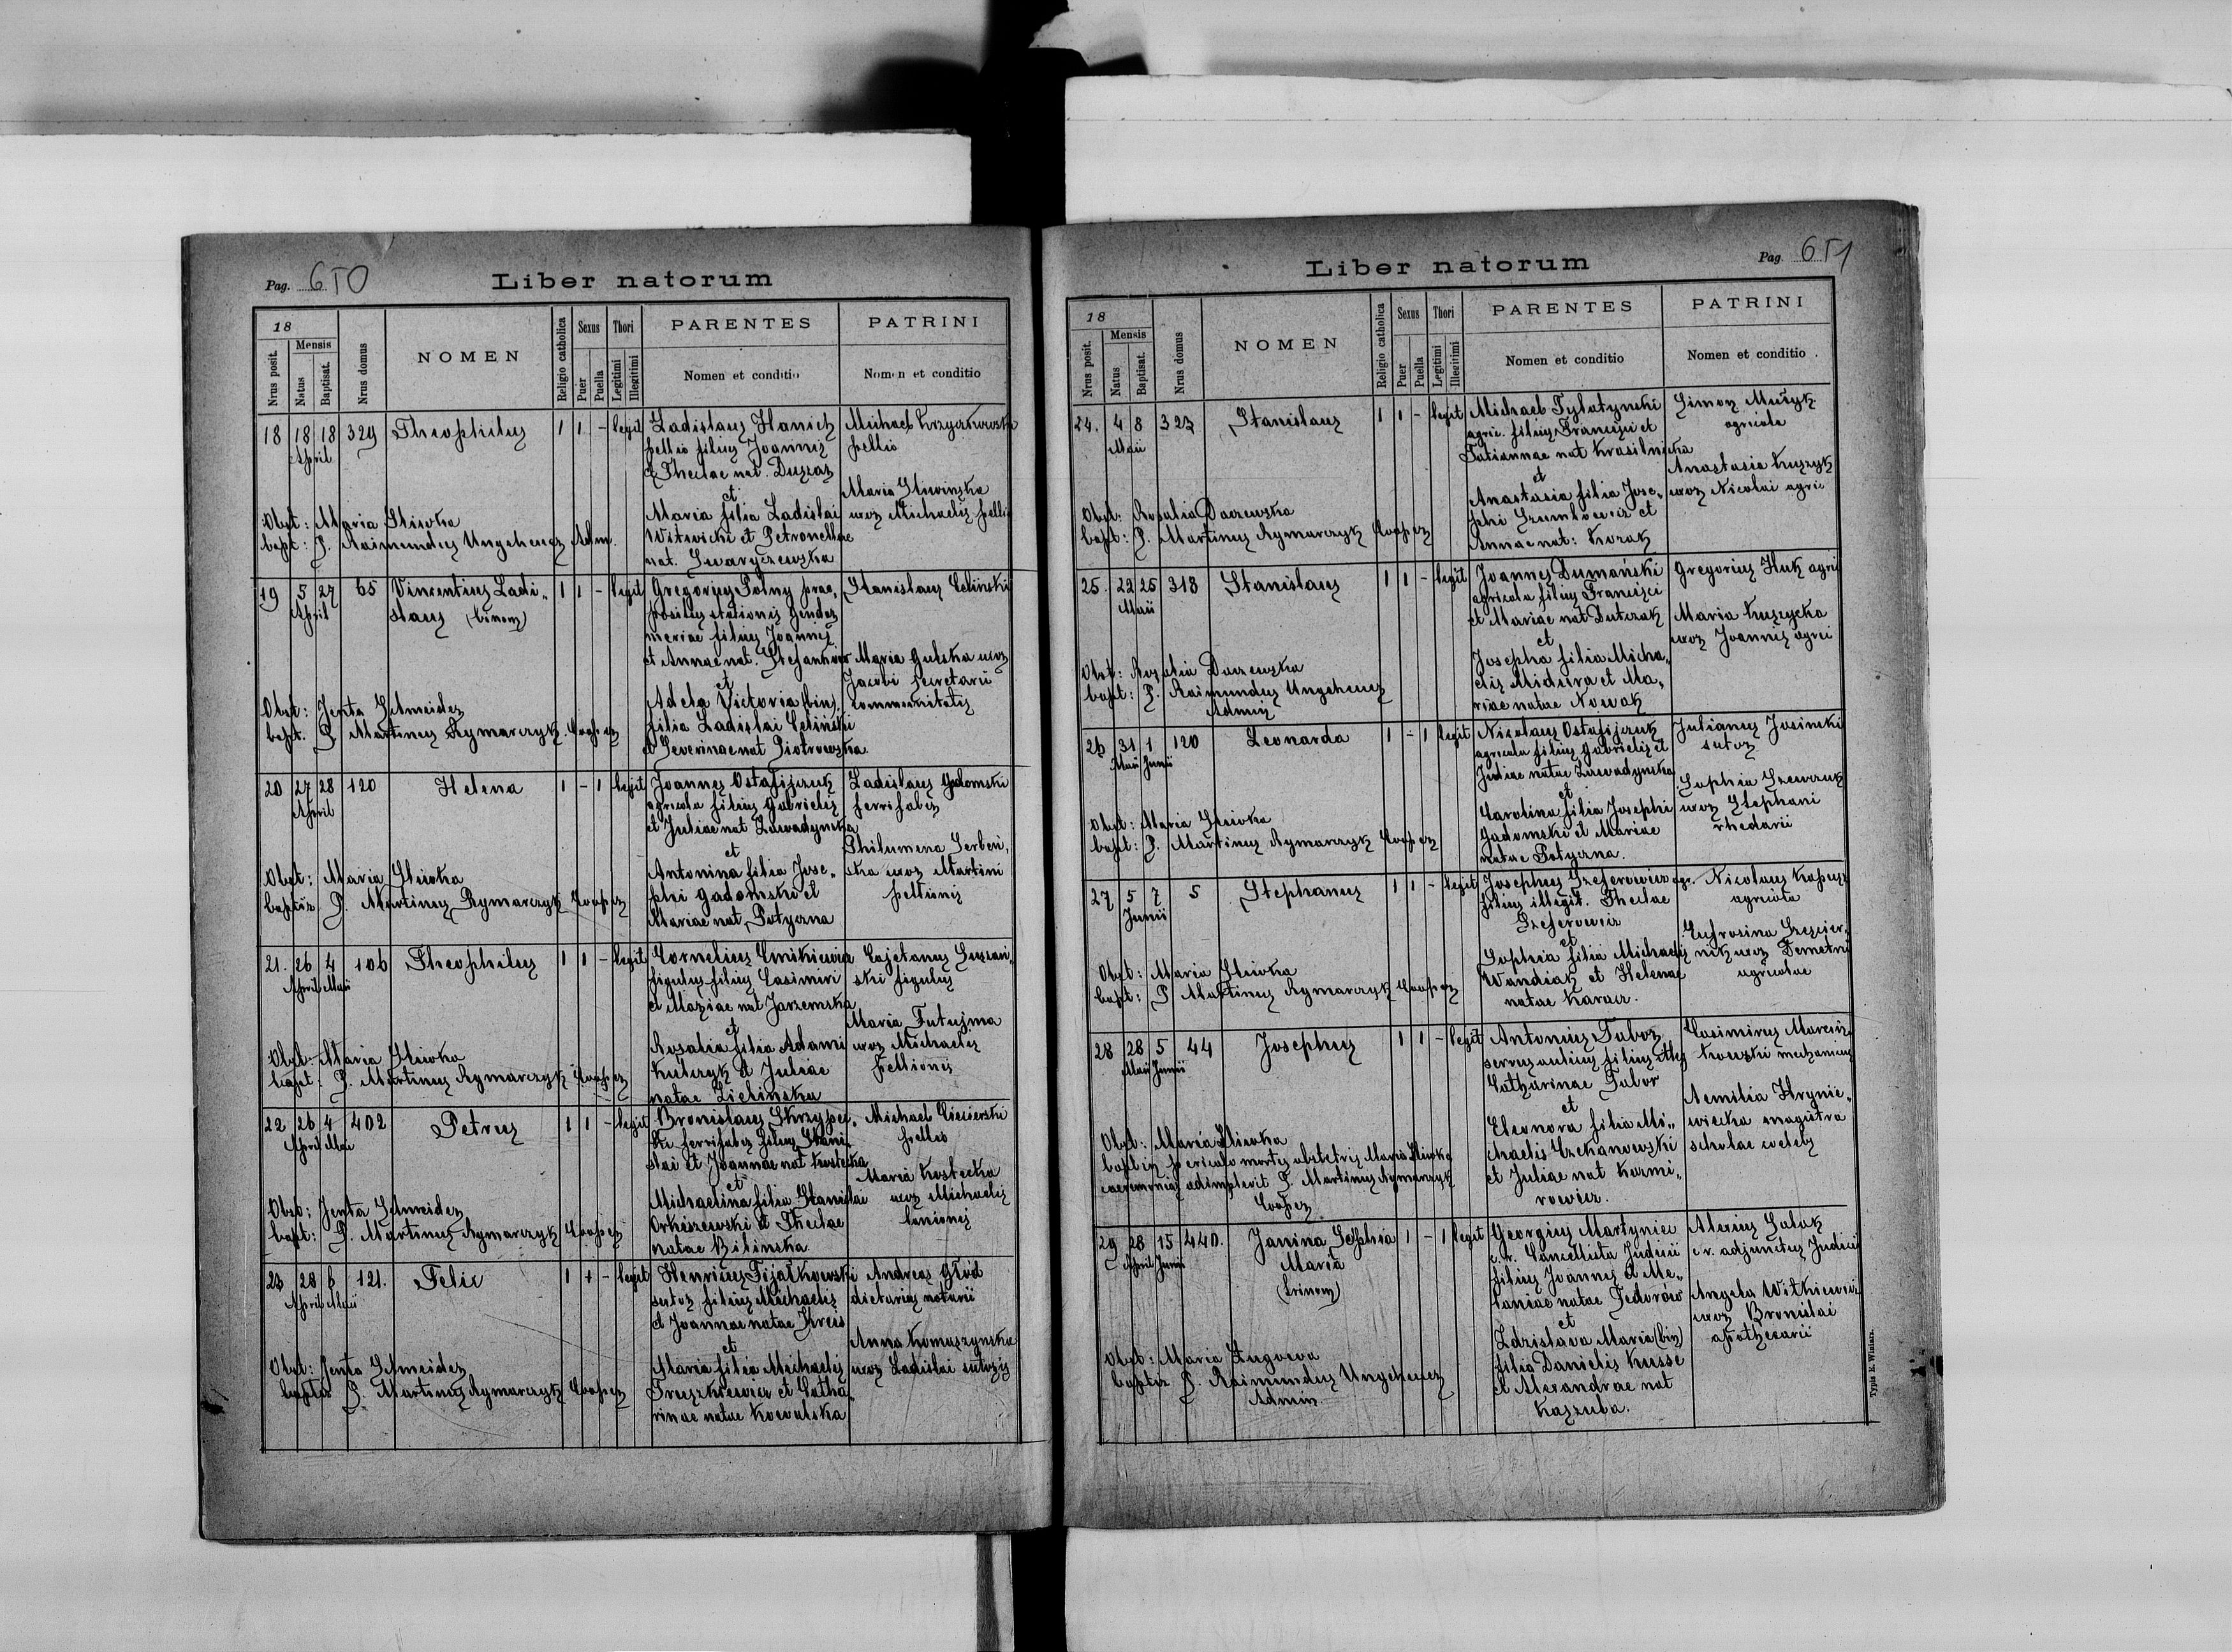 Pag. 650
Liber natorum
18
Mensis
Nrus posit.
Natus
Baptisat.
Nrus domus
NOMEN
Religio catholica
Sexus
Puer
Puella
Thori
Legitimi
Illegitimi
PARENTES
Nomen et conditio
PATRINI
Nomen et conditio
18 18 18 329 Theophilus 1 1 - legit
April
Ladislaus Hanich
pellio filius Joannis
et Theclae nat. Duszas
et
Maria filia Ladislai
Witwicki et Petronellae
nat. Swaryczewska
Michael
pellio
Maria Sliwinska
uxor Michaelis pellio
Obst: Maria Sliwka
bapt: P. Raimundus Ungeheuer Adm.
19 5 27 65 Vincentius Ladi-
April
slaus (binom) 1 1 - legit
Gregorius Polny prae-
positus stationis gendar
meriae filius Joannis
et Annae nat. Stefankow
et
Adela Victoria (bin)
filia Ladislai Celiński
et Severinae nat Piotrowska
Stanislaus Celinski
Maria Gulska uxor
Jacobi secretarii
communitatis
Obst: Jenta Schneider
bapt. P. Martinus Rymarczyk Cooper
20 27 28 120 Helena 1 - 1 legit
April
Joannes Ostafijczuk
agricola filius Gabrielis
et Juliae nat Zawadynska
et
Antonina filia Jose-
phi Gadomski et
Mariae nat. Potyczna
Ladislaus Gadomski
ferrifaber
Philumena Serben-
ska uxor Martini
pellionis
Obst: Maria Sliwka
baptiz. P. Martinus Rymarczyk Cooper
21. 26 4 106 Theophilus 1 1 - legit
April Maii
Cornelius Cmikiewicz
figulus filius Casimiri
et Mariae nat Jarzemska
et
Rosalia filia Adami
Kulczyk et Juliae
natae Zielinska
Cajetanus
ski figulus
Maria Futujma
uxor Michaelis
pellionis
Obst: Maria Sliwka
bapt. P. Martinus Rymarczyk Cooper
22 26 4 402 Petrus 1 1 - legit
April Maii
Bronislaus Skrzypec-
ki ferrifaber filius Stani-
slai et Joannae nat Kostecka
et
Michaelina filia Stanislai
Orkiszewski et Theclae
natae Bilinska
Michael
pellio
Maria Kostecka
uxor Michaelis
lanionis
Obst: Jenta Schneider
bapt: P. Martinus Rymarczyk Cooper
23 28 6 121. Felix 1 1 - legit
April Maii
Henricus Fijałkowski
sutor filius Michaelis
et Joannae natae Kreis
et
Maria filia Michaelis
Truszkiewicz et Catha-
rinae natae Kowalska
Andreas Głód
dietarius notarii
Anna Komaszynska
uxor Ladislai sutoris
Obst: Jenta Schneider
baptiz P. Martinus Rymarczyk Cooper
Pag. 651
Liber natorum
18
Mensis
Nrus posit.
Natus
Baptisat.
Nrus domus
NOMEN
Religio catholica
Sexus
Puer
Puella
Thori
Legitimi
Illegitimi
PARENTES
Nomen et conditio
PATRINI
Nomen et conditio
24. 4 8 323 Stanislaus 1 1 - legit
Maii
Michael Tylatynski
agric. filius Francisci et
Tatiannae nat Krasilnicka
et
Anastasia filia Jose-
phi Szumlowicz et
Annae nat: Kozak
Simon Muzyk
agricola
Anastasia Kuszyk
uxor Nicolai agric
Obst: Rosalia Daczewska
bapt: P. Martinus Rymarczyk Cooper
25. 22 25 318 Stanislaus 1 1 - legit
Maii
Joannes Dumański
agricola filius Francisci
et Mariae nat Dutczak
et
Josepha filia Micha-
elis Midura et Ma-
riae natae Nowak
Gregorius Huk agri
Maria Kuszycka
uxor Joannis agri
Obst: Rosalia Daczewska
bapt: P. Raimundus Ungeheuer
Admin
26 31 1 120 Leonarda 1 - 1 legit
Maii Junii
Nicolaus Ostafijczuk
agricola filius Gabrielis et
Juliae natae Zawadynska
et
Carolina filia Josephi
Gadomski et Mariae
natae Potyczna.
Julianus Josinski
sutor
Sophia Szewczuk
uxor Stephani
rhedarii
Obst: Maria Sliwka
bapt: P. Martinus Rymarczyk Cooper
27 5 7 5 Stephanus 1 1 - legit
Junii
Josephus Szeferowicz agr.
filius illegit. Theclae
Szeferowicz
et
Sophia filia Michaelis
Wandiak et Helenae
natae Karacz.
Nicolaus Kapusz
agricola
Eufrosina
nik uxor Demetri
agricolae
Obst: Maria Sliwka
bapt: P Martinus Rymarczyk Cooper
28 28 5 44 Josephus 1 1 - legit
Maii Junii
Antonius Tabor
servus aulicus filius illeg
Catharinae Tabor
et
Eleonora filia Mi-
chaelis Czekanowski
et Juliae nat Kazmi-
rowicz.
Casimirus Marcin-
kowski mechanicus
Aemilia Hrynie-
wiecka magistra
scholae
Obst: Maria Sliwka
bapt in periculo mortis obstetrix Maria Sliwka
caeremonias adimplevit P. Martinus Rymarczyk
Cooper
29 28 15 440. Janina Sophia 1 - 1 legit
April Junii
Maria
(trinom)
Georgius Martyniec
c. r. Cancellista Judicii
filius Joannis et Me-
laniae natae Fedorów
et
Zdzislava Maria (bin)
filia Danielis Kusse
et Alexandrae nat
Kaszuba.
Alexius Salak
c r. adjunctus Judicii
Angela Witkiewicz
uxor Bronislai
apothecarii
Obst: Maria Zugowa
baptiz. P. Raimundus Ungeheuer
Admin.
Typis E. Winiarz.